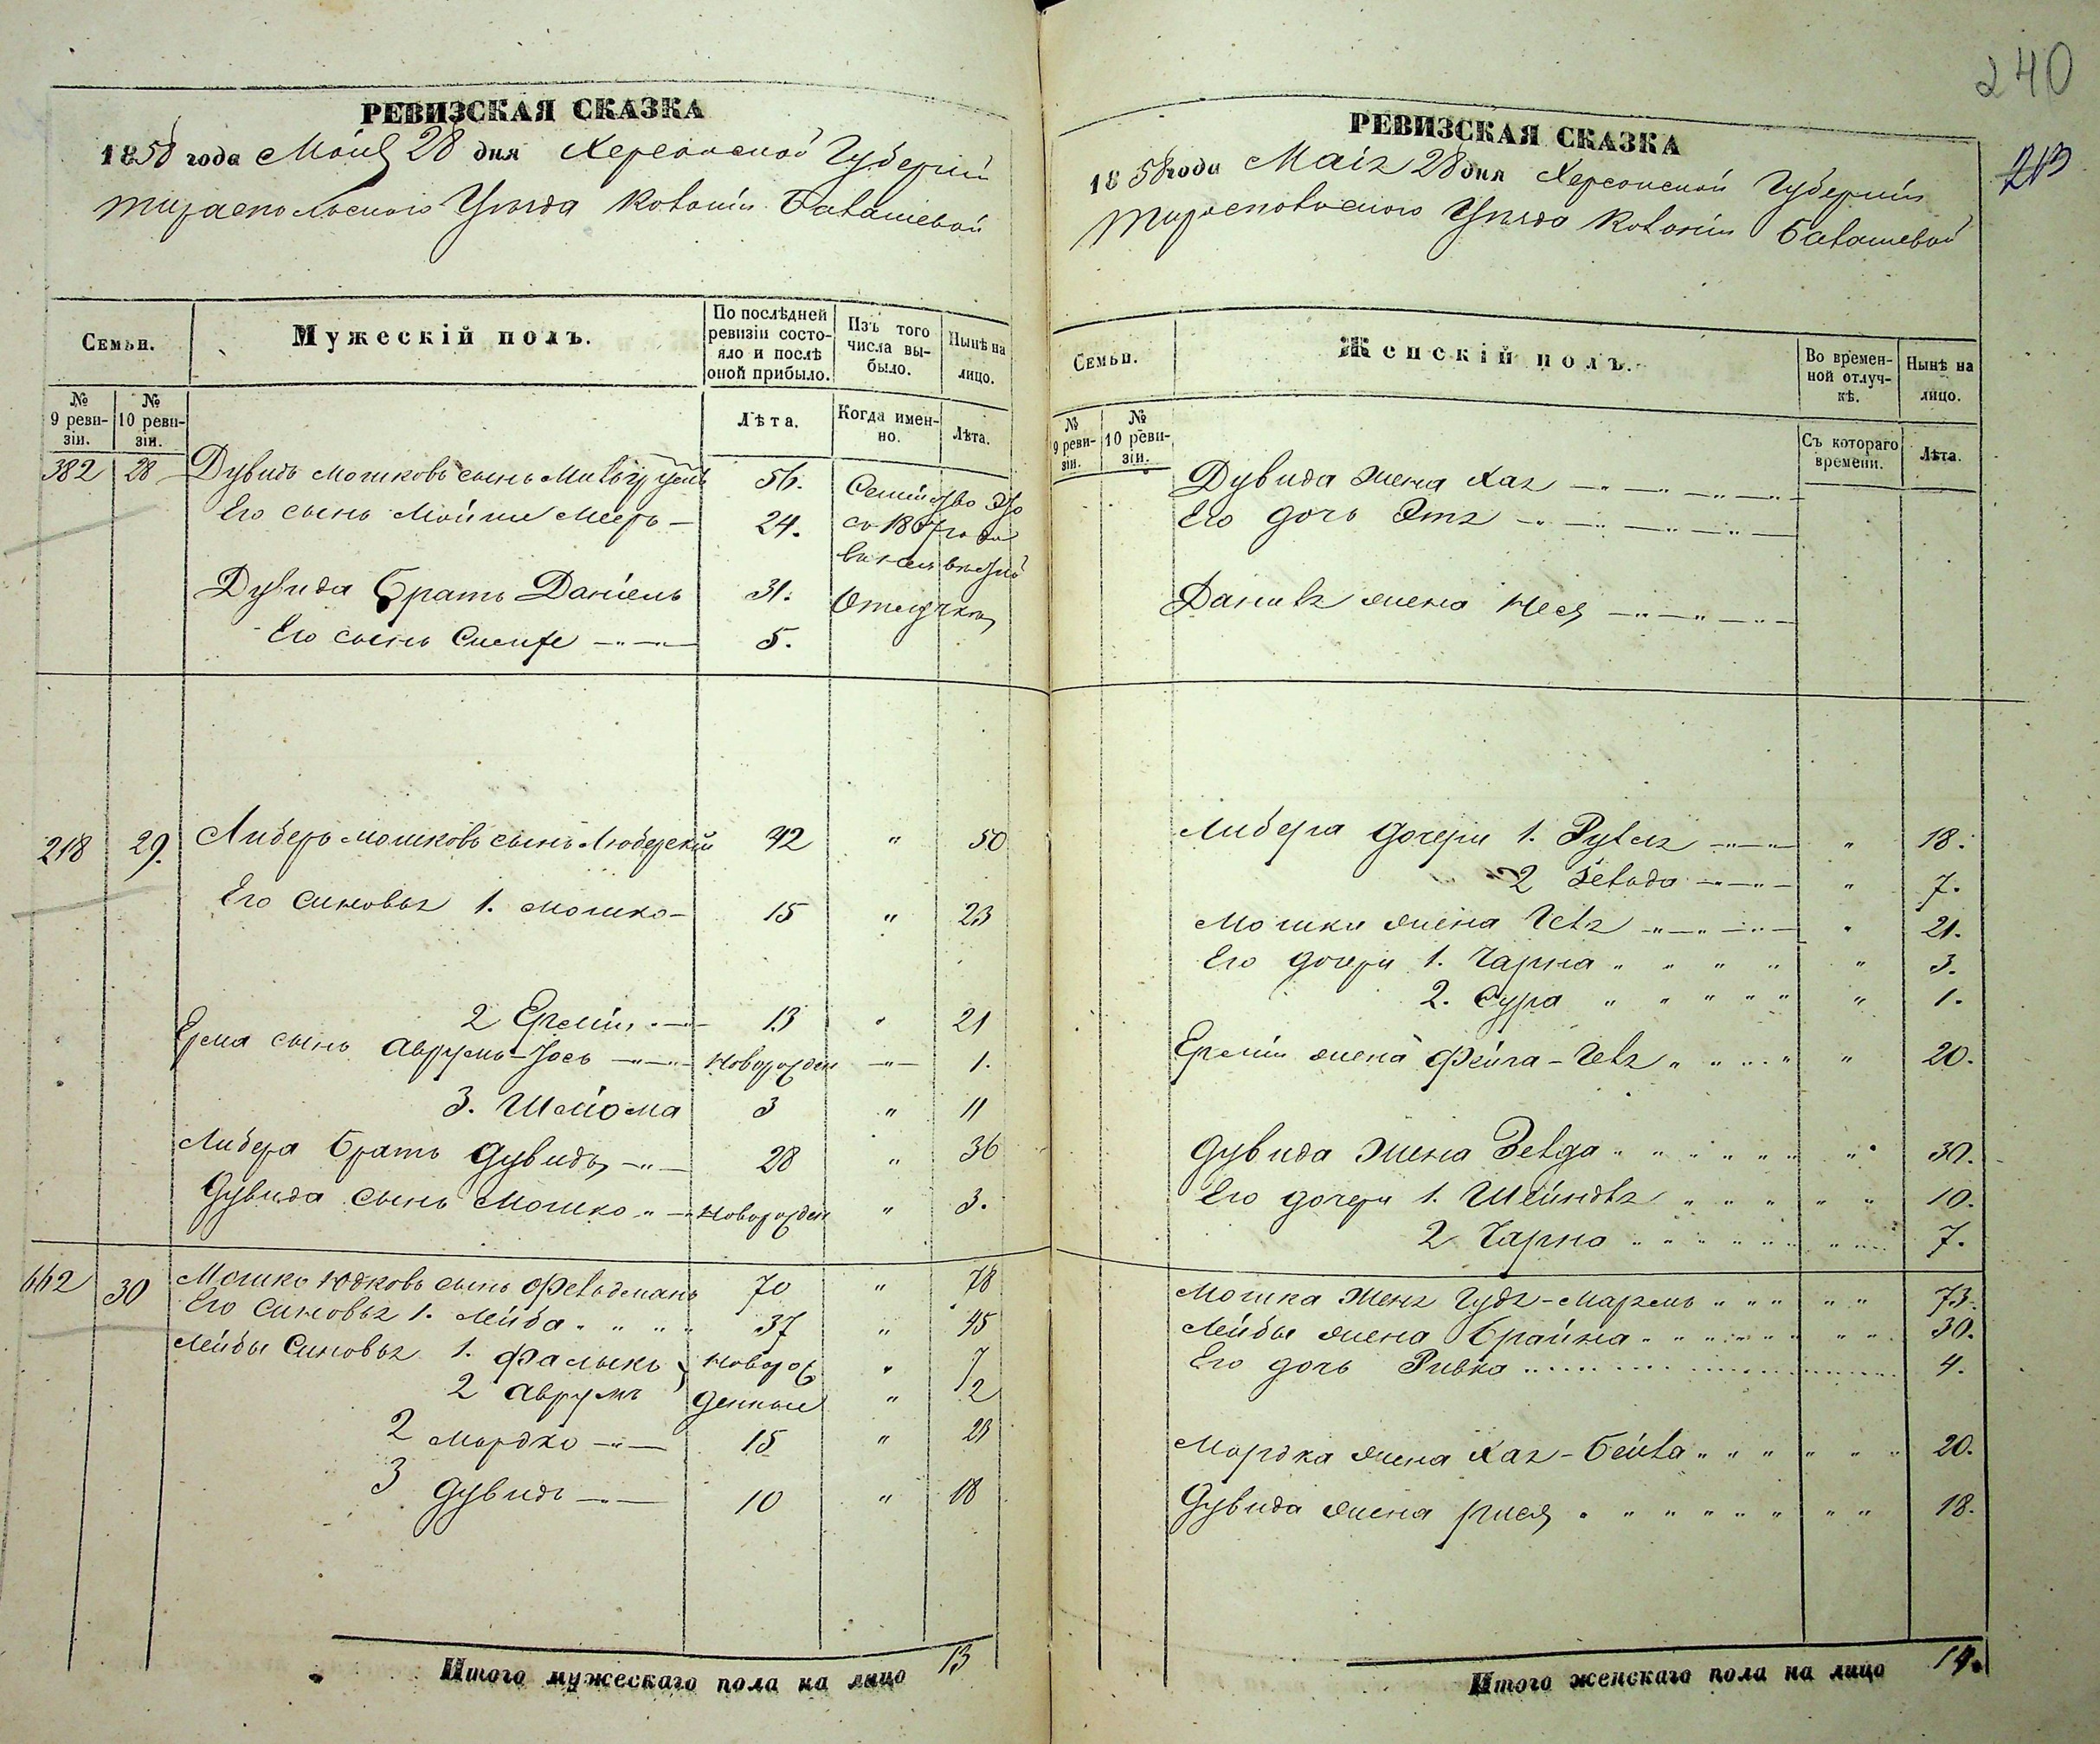 РЕВИЗСКАЯ СКАЗКА
1858 года Маія 28 дня Херсонской Губерніи
Тираспольскаго Уѣзда Колоніи Балашевой
Семьи.
Мужескій полъ.
По послѣдней ревизіи состояло и послѣ оной прибыло.
Изъ того числа выбыло.
Нынѣ на лицо.
№ 9 ревизіи.
№ 10 ревизіи.
Лѣта.
Когда именно.
Лѣта.
382 28 Дувидъ Мошковъ сынъ 56. Семейство
Его сынъ Мойше Мееръ 24. съ 1857 года
Дувида братъ Даніель 31. отлучкѣ
Его сынъ 5.
218 29. Либеръ Мошковъ сынъ Люберскій 42 " 50
Его синовья 1. Мошко 15 " 23
2 Еремій 13 " 21
Ерема сынъ Аврумъ-Іось Новорожден 1.
3. Шлйома 3 " 11
Либера братъ Дувидъ 28 " 36
Дувида сынъ Мошко Новорожден " 3.
662 30 Мошко Юдковъ сынъ Фельдманъ 70 " 78
Его синовья 1. Лейба 37 " 45
Лейбы синовья 1. Фалыкъ новорож " 7
2 Аврумъ денные " 2
2 Мордко 15 " 23
3 Дувидъ 10 " 18
Итого мужескаго пола на лицо 13
240
213
РЕВИЗСКАЯ СКАЗКА
1858 года Маія 28 дня Херсонской Губерніи
Тираспольскаго Уѣзда Колоніи Балашевой
Семьи.
Женскій полъ.
Во временной отлучкѣ.
Нынѣ на лицо.
№ 9 ревизіи.
№ 10 ревизіи.
Съ котораго времени.
Лѣта.
Дувида жена Хая
Его дочь Этя
Даниля жена Неся
Либера дочери 1. Рухля " 18.
2 Зельда " 7.
Мошки жена Геля " 21.
Его дочери 1. Чарна " 3.
2. Сура " 1.
Еремія жена Фейга-Геля " 20.
Дувида жена Зелда " 30.
Его дочери 1. Шейндля " 10.
2 Чарна " 7.
Мошка жена Гудя-Маріемъ " 73.
Лейбы жена Брайна " 30.
Его дочь Ривка 4.
Мордка жена Хая-Бейла " 20.
Дувида жена Рися " 18.
Итого женскаго пола на лицо 14.